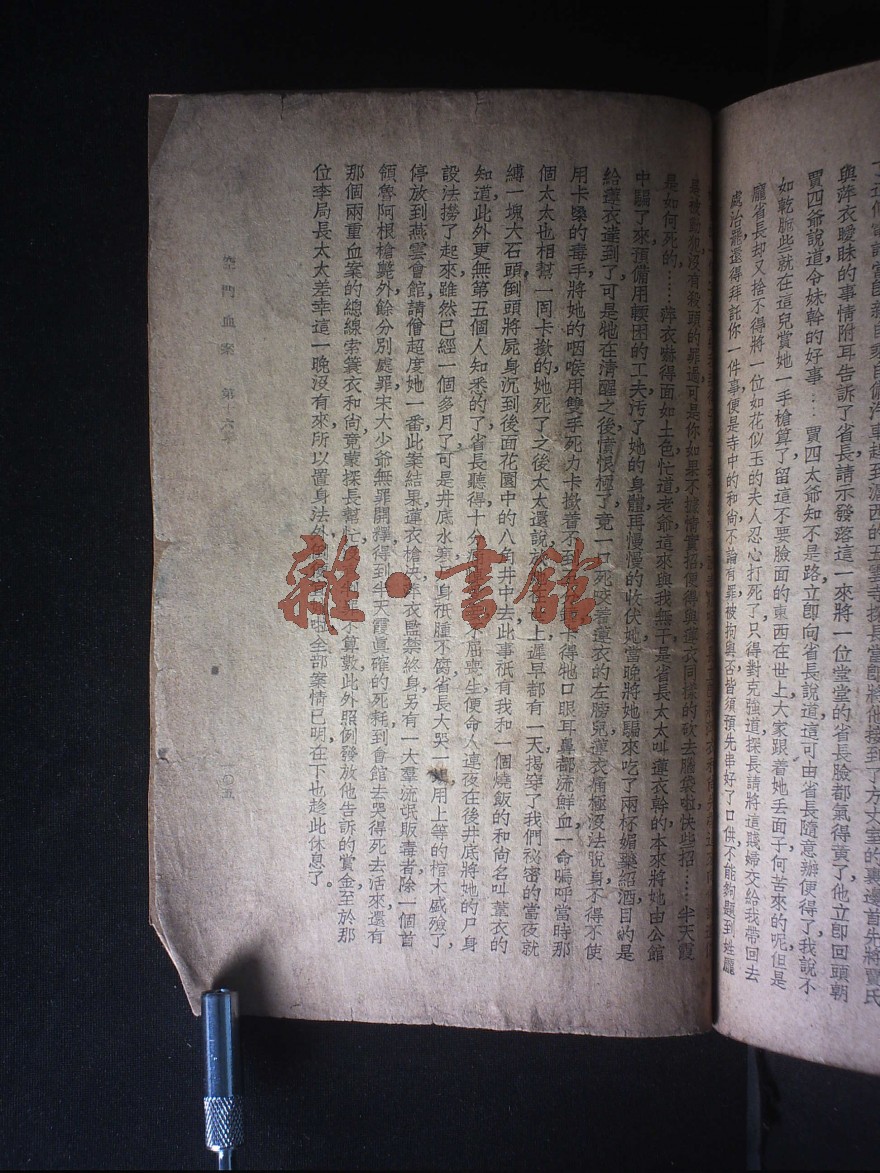 與萍衣曖昧的事情附耳告訴了省長請示發落這一來將一位堂堂的省長臉都氣得黃了他立卽回頭朝
賈四爺說道令妹幹的好事…賈四太爺知不是路立卽向省長說道這可由省長隨意辦便得了我說不
如乾脆些就在這兒賞她一手槍算了留這不要臉面的東西在世上大家跟着她丟面子何苦來的呢但是
龐省長却又捨不得將一位如花似玉的夫人忍心打死了只得對克強道探長請將這賤婦交給我帶回去
處治罷還得拜託你一件事便是寺中的和尙不論有罪被拘與否皆須預先串好了口供不能夠題到姓龐
是如何死的……萍衣嚇得面如土色忙道老爺這來與我無干是省長太太叫蓮衣幹的本來將她由公館
中騙了來預備用輭困的工夫汚了她的身體再慢慢的收伏她當晚將她騙來吃了兩杯媚藥紹酒目的是
給蓮衣達到了可是牠在清醒之後憤恨極了竟一口死咬着蓮衣的左膀兒蓮衣痛極沒法脫身不得不使
用卡嗓的毒手將她的咽喉用雙手死力卡撳着不到卡得牠口眼耳鼻都流鮮血一命嗚呼當時那
個太太也相幫一同卡撳的她死了之後太太還說上遲早都有一天揭穿了我們祕密的當夜就
縛一塊大石頭倒頭將屍身沉到後面花園中的八角井中去此事祇有我和一個燒飯的和尙名叫蓑衣的
知道此外更無第五個人知悉的了省長聽得十分屈喪生便命人連夜在後井底將她的尸身
設法撈了起來雖然已經一個多月了可是井底水寒身祇腫不腐省長大哭一塲用上等的棺木盛殮了
停放到燕雲會館請僧超度她一番此案結果蓮衣槍決萍衣監禁終身另有一大羣流氓販毒者除一個首
領魯阿根槍斃外餘分別處罪宋大少爺無罪開釋得到半天霞眞確的死耗到會館去哭得死去活來還有
那個兩重血案的總線索蓑衣和尙竟蒙探長幫忙不算數此外照例發放他告訴的賞金至於那
位李局長太太差幸這一晚沒有來所以置身法外啦全部案情已明在下也趁此休息了。
空門血案　第十六章
一〇五
雜·書館